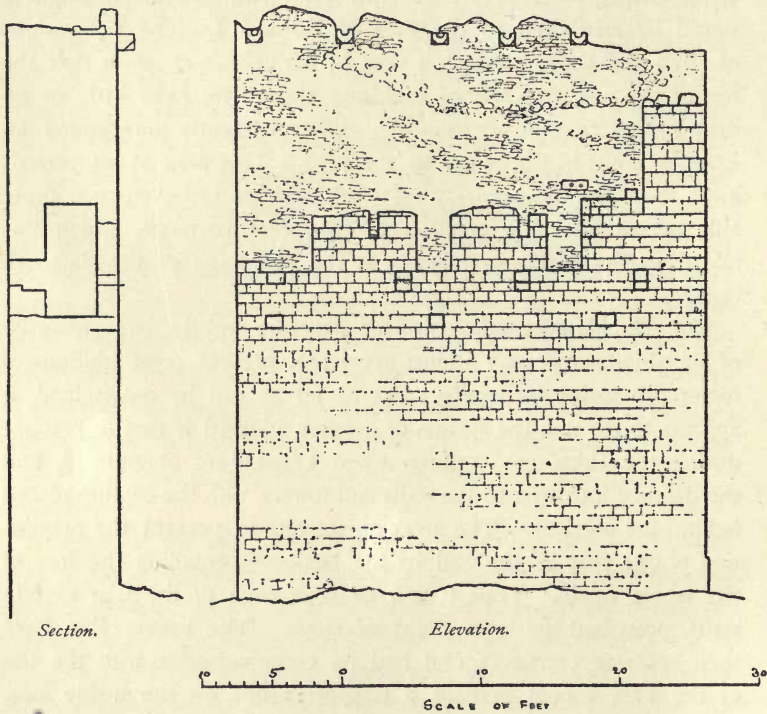 Section. Elevation.
10 5 0 10 20 30
SCALE OF FEET